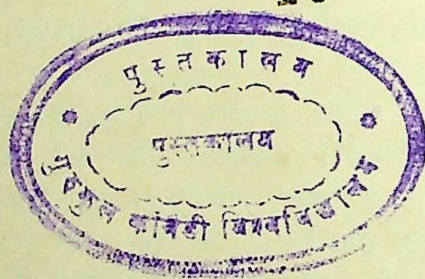 पुस्तकालय
पुस्तकालय
गुरुकुल कांगड़ी विश्वविद्यालय